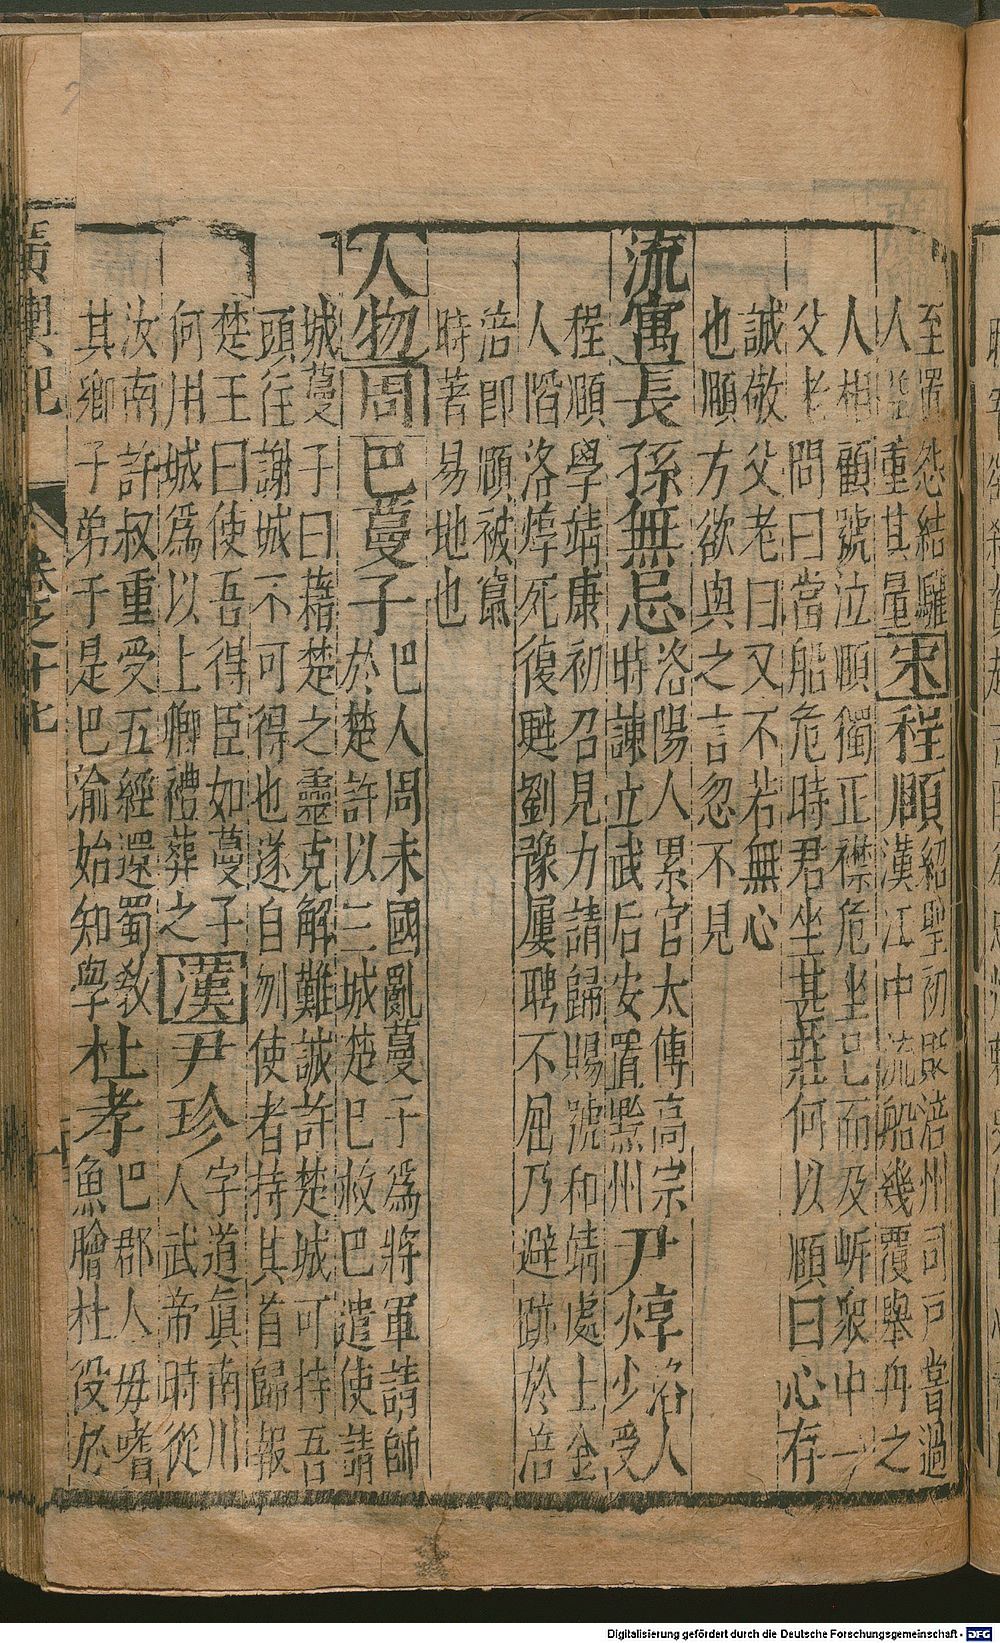 至罷怨結騷宋程頤紹聖初貶涪州司戶嘗過
人 重其量漢江中流船幾覆舉舟之
人相顧號泣頤獨正襟危坐已而及岸眾中一
父老問曰當船危時君坐甚莊何以頤曰心存
誠敬父老曰又不若無心
也頤方欲與之言忽不見
流寓長孫無忌洛陽人累官太傅高宗
時諫立武后安置黔州尹焞洛人
少受
程頤學靖康初召見力請歸賜號和靖處士金
人陷洛焞死復甦劉豫屢聘不屈乃避跡於涪
涪即頤被竄
時著易地也
人物周巴蔓子巴人周末國亂蔓子爲將軍請師
於楚許以三城楚已救巴遣使請
城蔓子曰藉楚之靈克解難誠許楚城可持吾
頭往謝城不可得也遂自刎使者持其首歸報
楚王曰使吾得臣如蔓子
何用城爲以上卿禮葬之漢尹珍字道眞南川
人武帝時從
汝南許叔重受五經還蜀教
其鄉子弟于是巴渝始知學杜孝巴郡人母嗜
魚膾杜役於
廣輿記 卷之十七
Digitalisierung gefördert durch die Deutsche Forschungsgemeinschaft - DFG